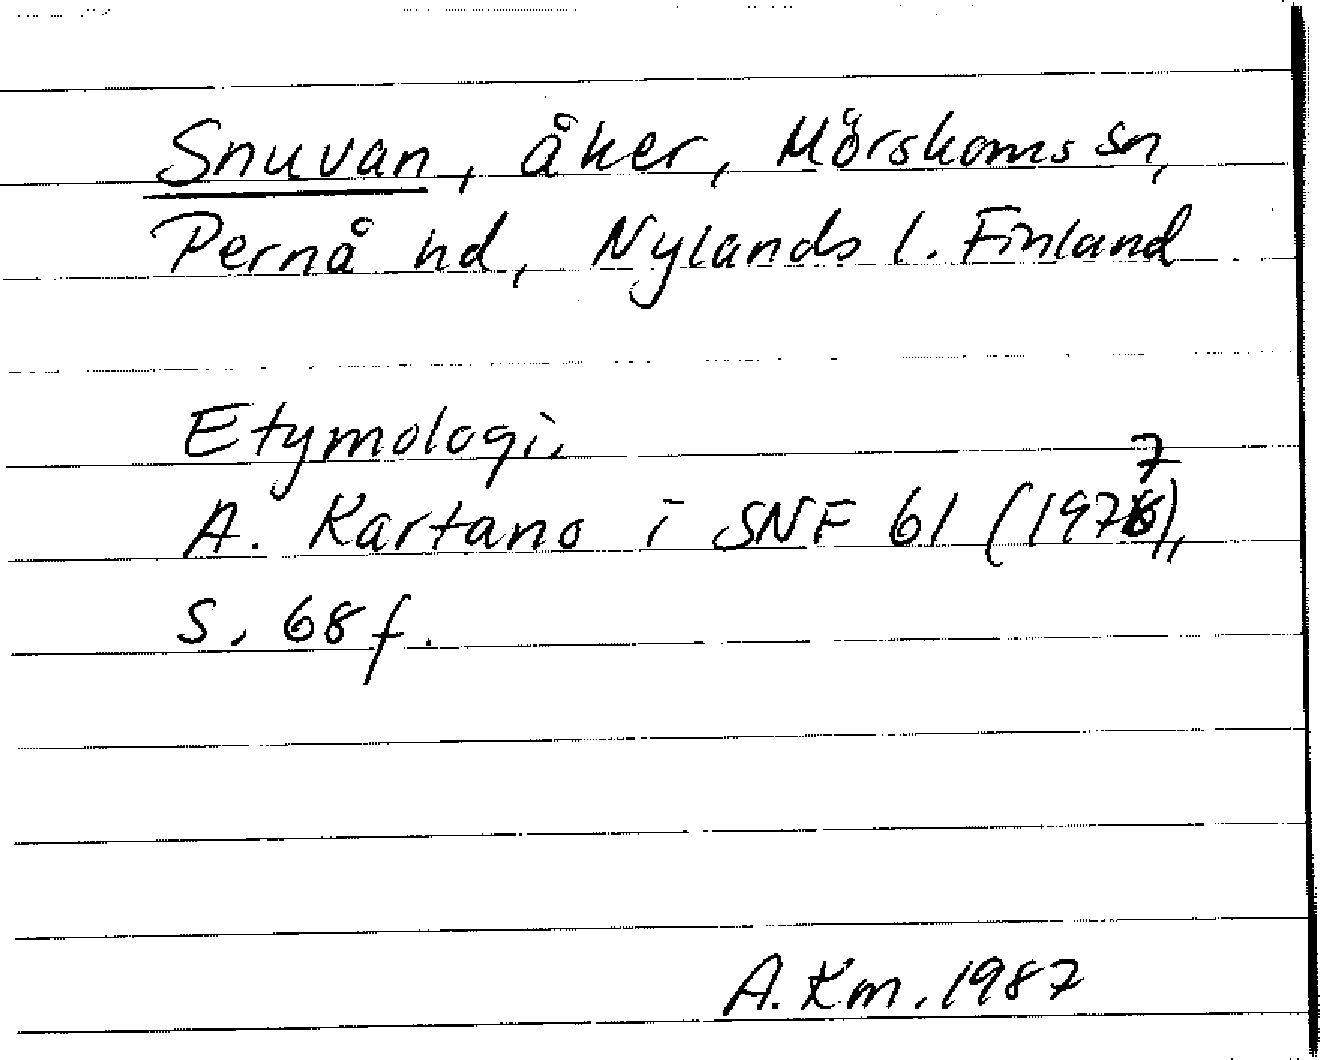 Snuvan, åker, Mörskoms sn,
Pernå hd, Nylands l. Finland
Etymologi.
A. Kartano i SNF 61 (1977),
s. 68 f.
A. Km. 1987